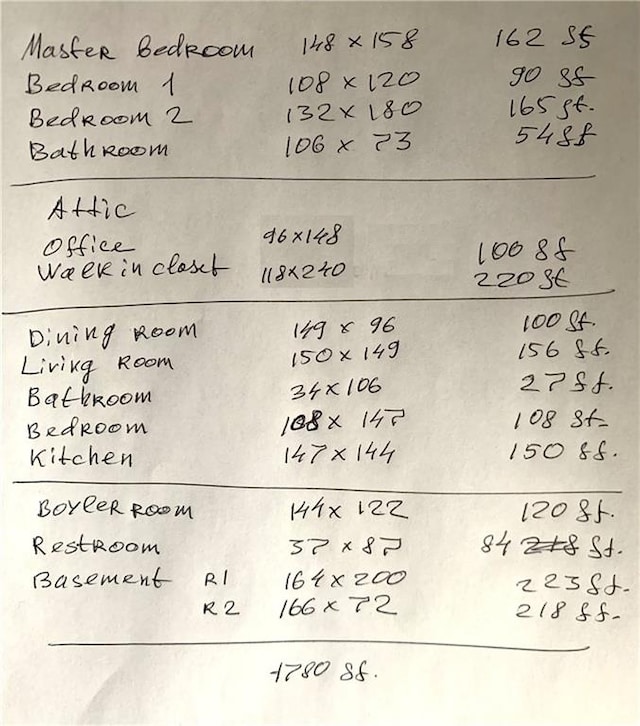 Master Bedroom 148 x 158 162 sf
Bedroom 1 108 x 120 90 sf
Bedroom 2 132 x 180 165 sf.
Bathroom 106 x 73 54 sf
Attic
Office 96x148 100 sf
Walk in closet 118x240 220 sf
Dining Room 149 x 96 100 sf.
Living Room 150 x 149 156 sf.
Bathroom 34x106 27 sf.
Bedroom 108 x 147 108 sf.
Kitchen 147 x 144 150 sf.
Boyler room 144 x 122 120 sf.
Restroom 37 x 87 84 218 sf.
Basement R1 164 x 200 223 sf.
R2 166 x 72 218 sf.
1780 sf.